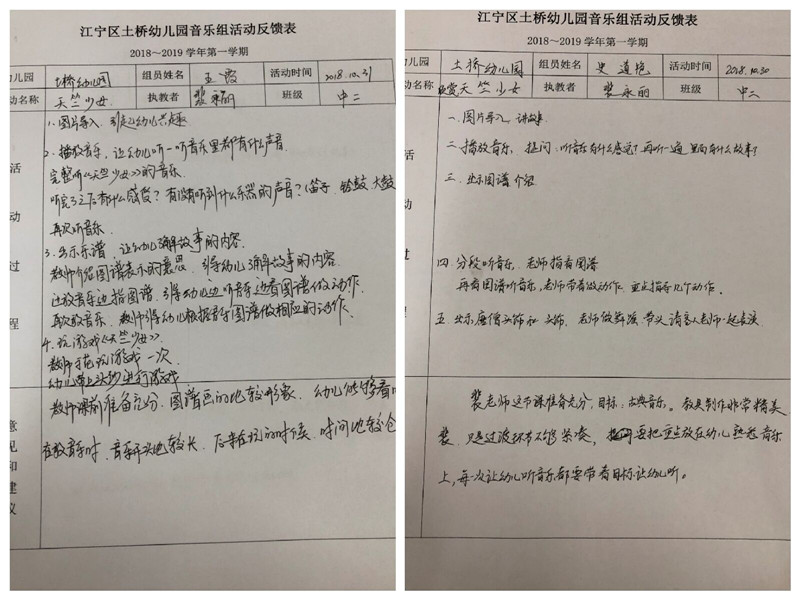 江宁区土桥幼儿园音乐组活动反馈表
2018~2019学年第一学期
幼儿园 土桥幼儿园 组员姓名 王霞 活动时间 2018.10.31
动名称 天竺少女 执教者 裴永丽 班级 中二
活动过程
1.图片导入,引起幼儿兴趣
2.播放音乐,让幼儿听一听音乐里都有什么声音
完整听《天竺少女》的音乐
听完了之后有什么感受?有没有听到什么乐器的声音?(笛子、铃鼓、大鼓
再次听音乐
3.出示乐谱,让幼儿理解故事的内容
教师介绍图谱表示的意思,引导幼儿理解故事的内容
边放音乐边指图谱,引导幼儿边听音乐边看图谱做动作
再次放音乐,教师引导幼儿根据音乐图谱做相应的动作.
4.玩游戏《天竺少女》
教师示范玩游戏一次
幼儿带上头纱进行游戏
意见和建议
教师课前准备充分,图谱画的比较形象,幼儿能够看
在放音乐时,音乐开头比较长,后来玩的时候,时间比较仓
江宁区土桥幼儿园音乐组活动反馈表
2018~2019学年第一学期
幼儿园 土桥幼儿园 组员姓名 史道艳 活动时间 2018.10.30
动名称 欣赏天竺少女 执教者 裴永丽 班级 中二
活动过程
一.图片导入,讲故事.
二.播放音乐,提问:听音乐有什么感觉?再听一遍,里面有什么故事?
三.出示图谱介绍
四.分段听音乐,老师指着图谱
再看图谱听音乐,老师带着做动作.重点指导几个动作.
五.出示唐僧 老师做舞蹈,带头请客人老师一起表演
裴老师这节课准备充分,目标:古典音乐。教具制作非常精美
只是过渡环节不够紧凑,要把重点放在幼儿熟悉音乐
上,每一次让幼儿听音乐都要带着目标让幼儿听。